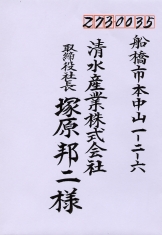 2730035
船橋市本中山一-二-六
清水産業株式会社
取締役社長
塚原邦二様